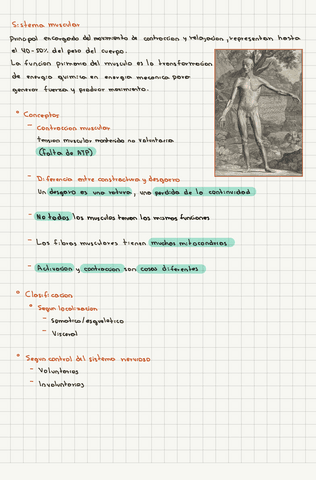 Sistema muscular
Principal encargado del movimiento de contracción y relajación, representan hasta
el 40-50% del peso del cuerpo.
La funcion primaria del musculo es la transformacion
de energia quimica en energia mecanica para
generar fuerza y producir movimiento.
• Conceptos
- Contracción muscular
tension muscular mantenida no voluntaria
(falta de ATP)
- Diferencia entre constractura y desgarro
Un desgarro es una rotura, una perdida de la continuidad
- No todos los musculos tienen las mismas funciones
- Las fibras musculares tienen muchas mitocondrias
- Activacion y contraccion son cosas diferentes
• Clasificacion
• Segun localizacion
- Somatico/esqueletico
- Visceral
• Segun control del sistema nervioso
- Voluntarios
- Involuntarios